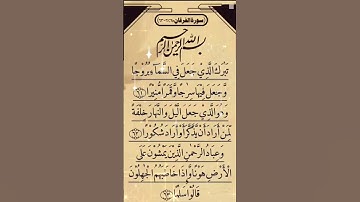 سورة الفرقان
بسم الله الرحمن الرحيم
تَبَٰرَكَ ٱلَّذِى جَعَلَ فِى ٱلسَّمَآءِ بُرُوجًا
وَجَعَلَ فِيهَا سِرَٰجًا وَقَمَرًا مُّنِيرًا ٦١
وَهُوَ ٱلَّذِى جَعَلَ ٱلَّيْلَ وَٱلنَّهَارَ خِلْفَةً
لِّمَنْ أَرَادَ أَن يَذَّكَّرَ أَوْ أَرَادَ شُكُورًا ٦٢
وَعِبَادُ ٱلرَّحْمَٰنِ ٱلَّذِينَ يَمْشُونَ عَلَى
ٱلْأَرْضِ هَوْنًا وَإِذَا خَاطَبَهُمُ ٱلْجَٰهِلُونَ
قَالُوا۟ سَلَٰمًا ٦٣